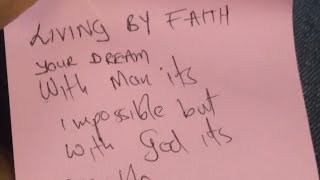 LIVING BY FAITH
YOUR DREAM
With Man its
impossible but
with God its